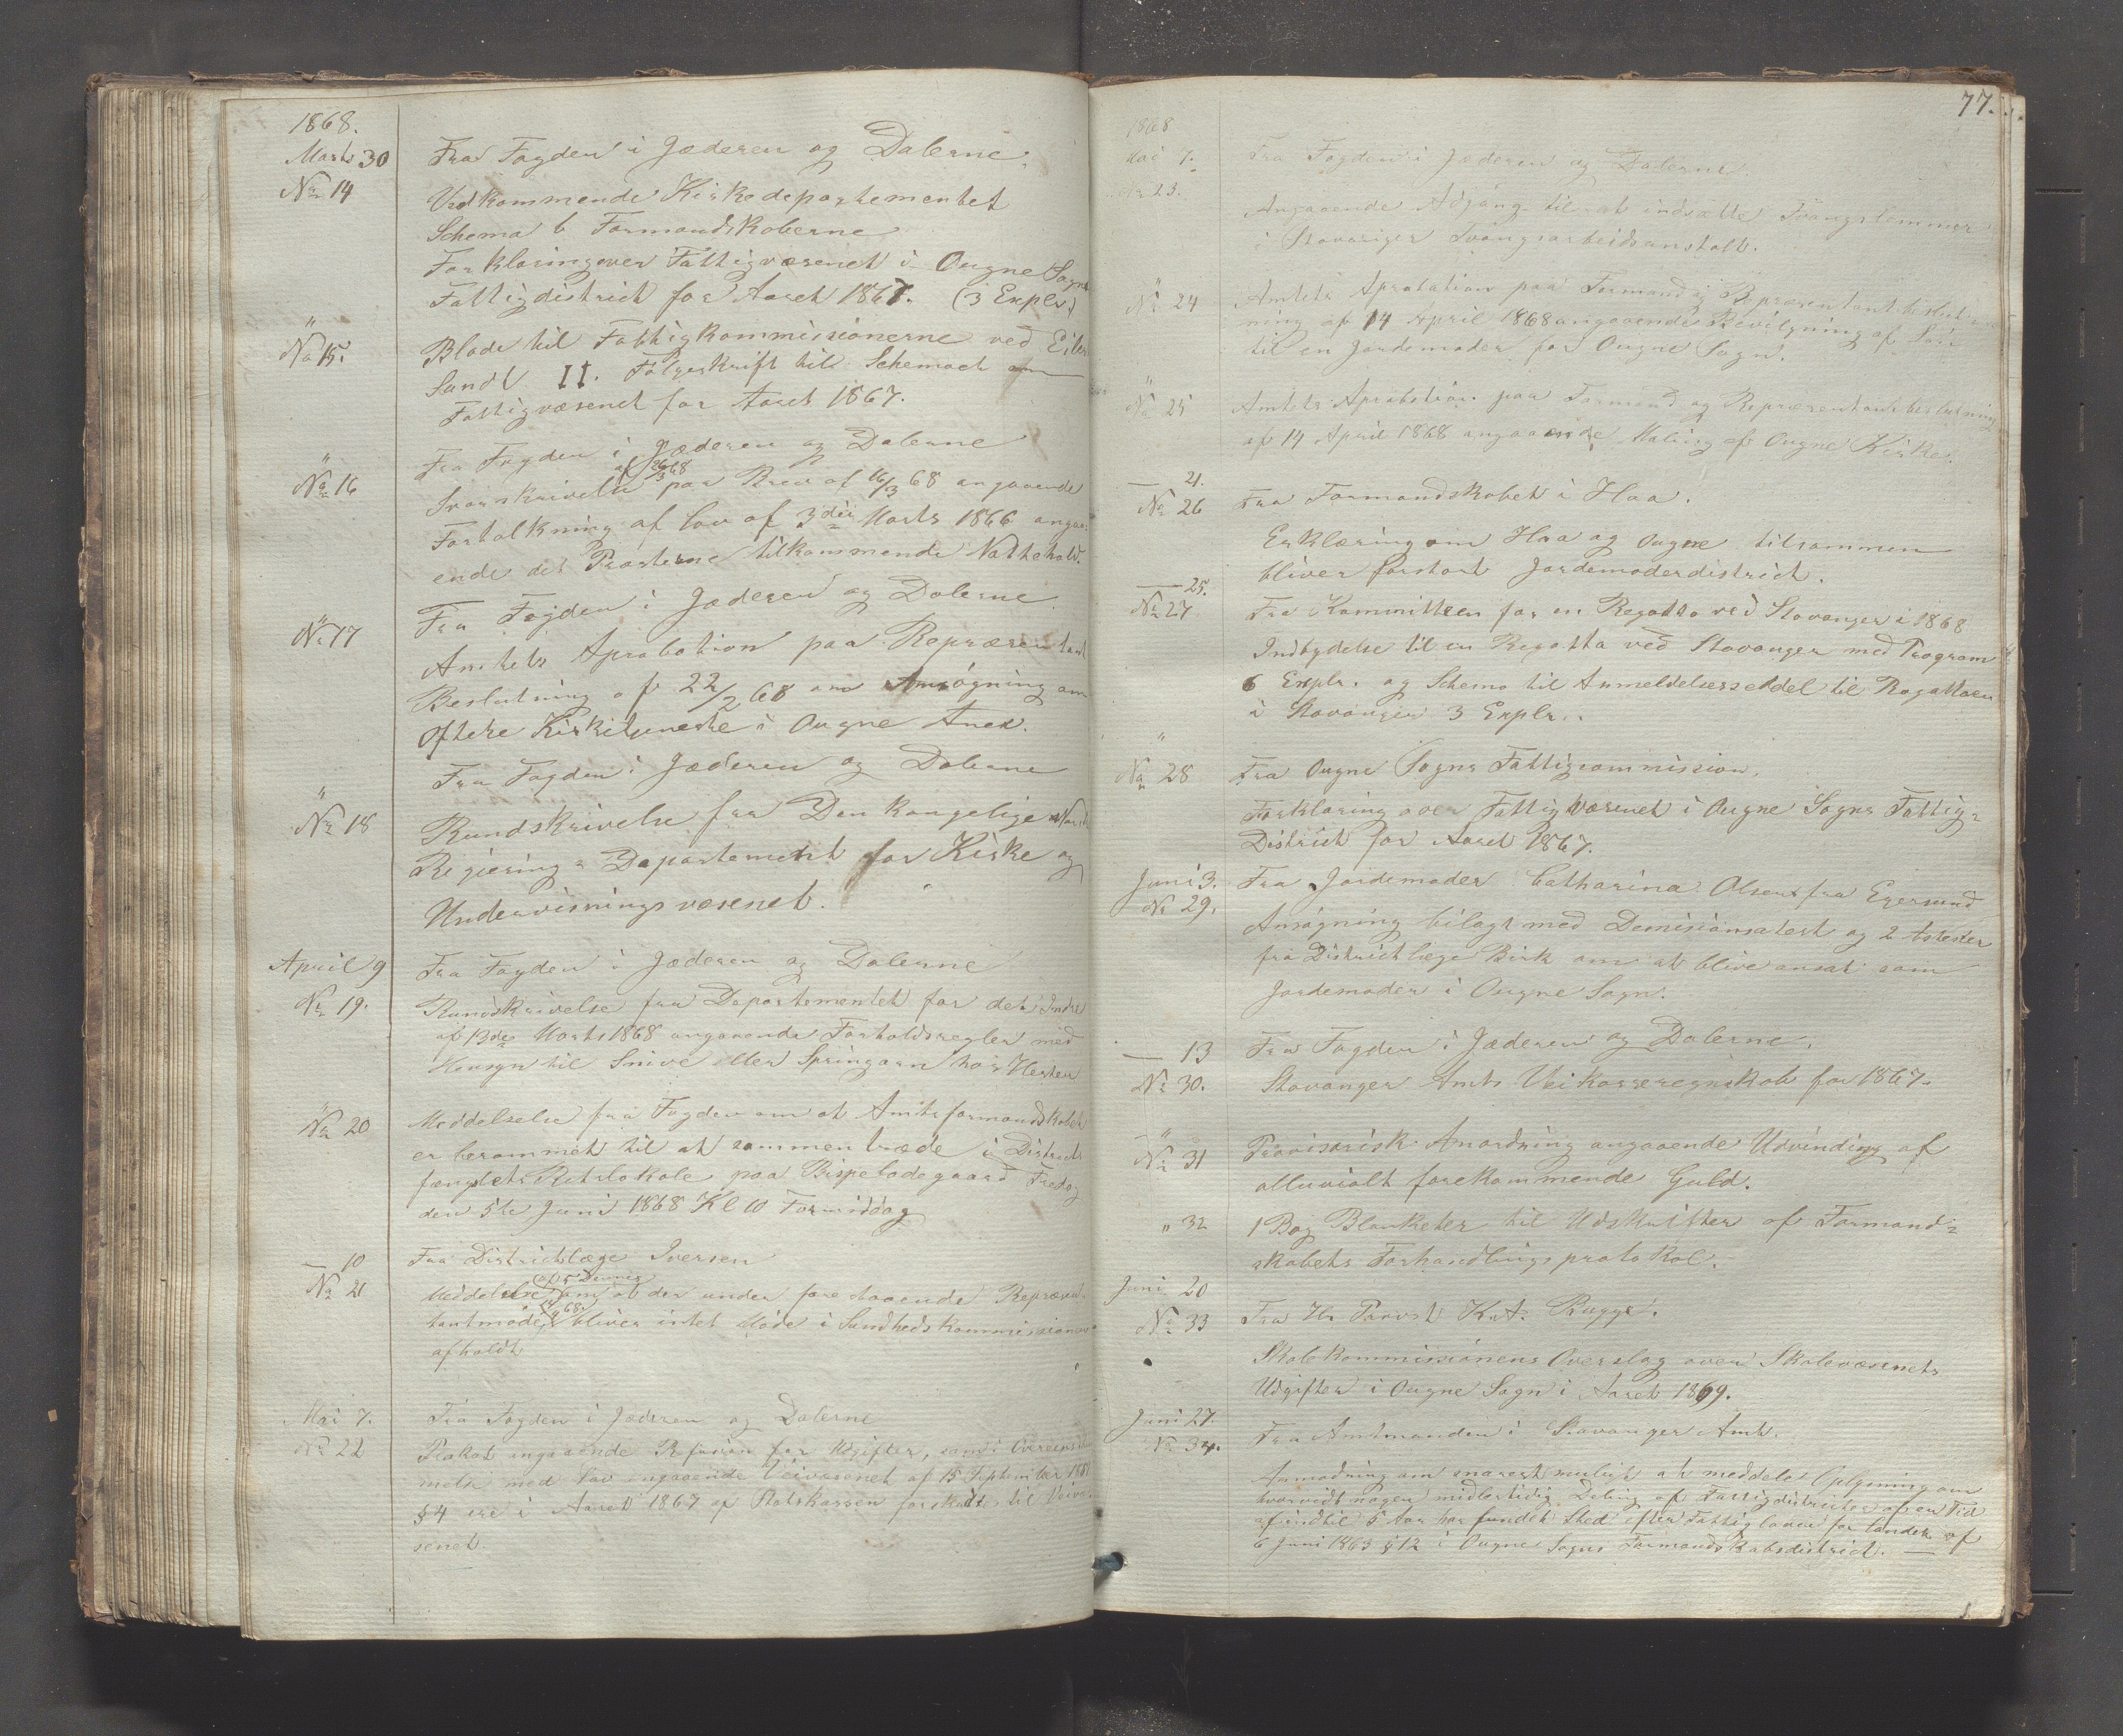 1868.
Marts 30
Fra Fogden i Jæderen og Dalerne.
No 14
Vedkommende Kirkedepartementet
Schema b Formandskaberne
Forklaring over Fattigvæsenet i Ougne Sogns
Fattigdistrict for Aaret 1867. (3 Explr.)
"
No 15.
Blade til Fattigkommissionerne ved Eilert
Sundt II. Følgeskrift til Schemaet om
Fattigvæsenet for Aaret 1867.
Fra Fogden i Jæderen og Dalerne
"
No 16
Svarskrivelse af 26/3 68 paa Brev af 16/3 68 angaaende
Fortolkning af Lov af 3die Marts 1866 angaa-
ende det Præsterne tilkommende Nattehold.
Fra Fogden i Jæderen og Dalerne.
"
No 17
Amtets Aprobation paa Repræsentant
Beslutning af 22/2 68 om Ansøgning om
oftere Kirketjeneste i Ougne Anex.
Fra Fogden i Jæderen og Dalerne
"
No 18
Rundskrivelse fra Den kongelige Norske
Regjerings Departement for Kirke og
Undervisningsvæsenet.
April 9
Fra Fogden i Jæderen og Dalerne
No 19.
Rundskrivelse fra Departementet for det Indre
af 13de Marts 1868 angaaende Forholdsregler med
Hensyn til Snive eller Springorm hos Hesten
"
No 20
Meddelelse fra Fogden om at Amtsformandskabet
er berammet til at sammentræde i Districts
fængslets Retslokale paa Bispeladegaard Fredag
den 5te Juni 1868 Kl 10 Formiddag
— 10
Fra Districtslæge Iversen
No 21
Meddelelse af 5 Dennes om at der under forestaaende Repræsen-
tantmøde 14/4 68 bliver intet Møde i Sundhedskommissionen
afholdt
Mai 7.
Fra Fogden i Jæderen og Dalerne
No 22
Plakat angaaende Refusion for Udgifter, som i Overeenstem-
melse med Lov angaaende Veivæsenet af 15 September 1851
§ 4 ere i Aaret 1867 af Statskassen forskudt til Veivæ-
senet.
77.
1868
Mai 7.
Fra Fogden i Jæderen og Dalerne.
No 23.
Angaaende Adgang til at indsætte Tvangslemmer
i Stavanger Tvangsarbeidsanstalt.
"
No 24
Amtets Aprobation paa Formand og Repræsentantbeslut-
ning af 14 April 1868 angaaende Bevilgning af Løn
til en Jordemoder for Ougne Sogn.
"
No 25
Amtets Aprobation paa Formand og Repræsentantbeslutning
af 14 April 1868 angaaende Maling af Ougne Kirke.
— 21.
No 26
Fra Formandskabet i Haa.
Erklæring om Haa og Ougne tilsammen
bliver forstort Jordemoderdistrict.
— 25.
No 27
Fra Kommitteen for en Regatta ved Stavanger i 1868
Indbydelse til en Regatta ved Stavanger med Program
6 Explr. og Schema til Anmeldelsesseddel til Regattaen
i Stavanger 3 Explr.
"
No 28
Fra Ougne Sogns Fattigcommission.
Forklaring over Fattigvæsenet i Ougne Sogns Fattig-
District for Aaret 1867.
Juni 3.
Fra Jordemoder Catharina Olsen fra Egersund
No 29.
Ansøgning bilagt med Demisionsatest og 2 Atester
fra Districtlæge Birk om at blive ansat som
Jordemoder i Ougne Sogn.
— 13
Fra Fogden i Jæderen og Dalerne.
No 30.
Stavanger Amts Veikasseregnskab for 1867.
"
No 31
Provisorisk Anordning angaaende Udvinding af
alluvialt forekommende Guld.
" 32
1 Bog Blanketer til Udskrifter af Formand-
skabets Forhandlingsprotokol.
Juni 20
No 33
Fra Hr Provst K. A. Rugge.
Skolekommissionens Overslag over Skolevæsenets
Udgifter i Ougne Sogn i Aaret 1869.
Juni 27.
No 34.
Fra Amtmanden i Stavanger Amt.
Anmodning om snarest muligt at meddele Oplysning om
hvorvidt nogen midlertidig Deling af Fattigdistricter af en Tid
af indtil 5 Aar har fundet Sted efter Fattigloven for Landet af
6 Juni 1863 § 12 i Ougne Sogns Formandskabsdistrict. —